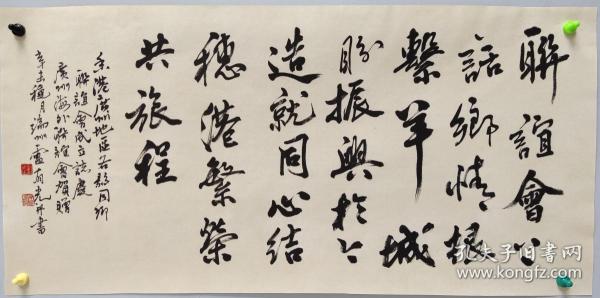 聯誼會上
話鄉情根
繫羊城
盼振興於今
造就同心結
穗港繁榮
共旅程
香港廣州地區各縣同鄉
聯誼會成立誌慶
廣州海外聯誼會賀贈
辛未穐月端州盧有光并書
孔夫子旧书网
www.kongfz.com